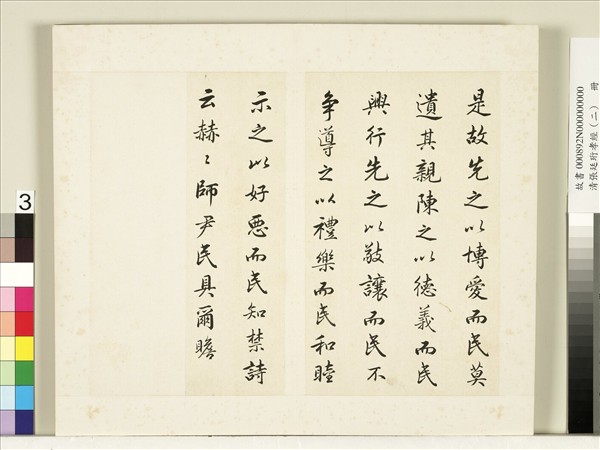 是故先之以博愛而民莫
遺其親陳之以德義而民
興行先之以敬讓而民不
爭導之以禮樂而民和睦
示之以好惡而民知禁詩
云赫〻師尹民具爾瞻
故書 000892N000000000 冊
清張廷珩孝經（二）
3